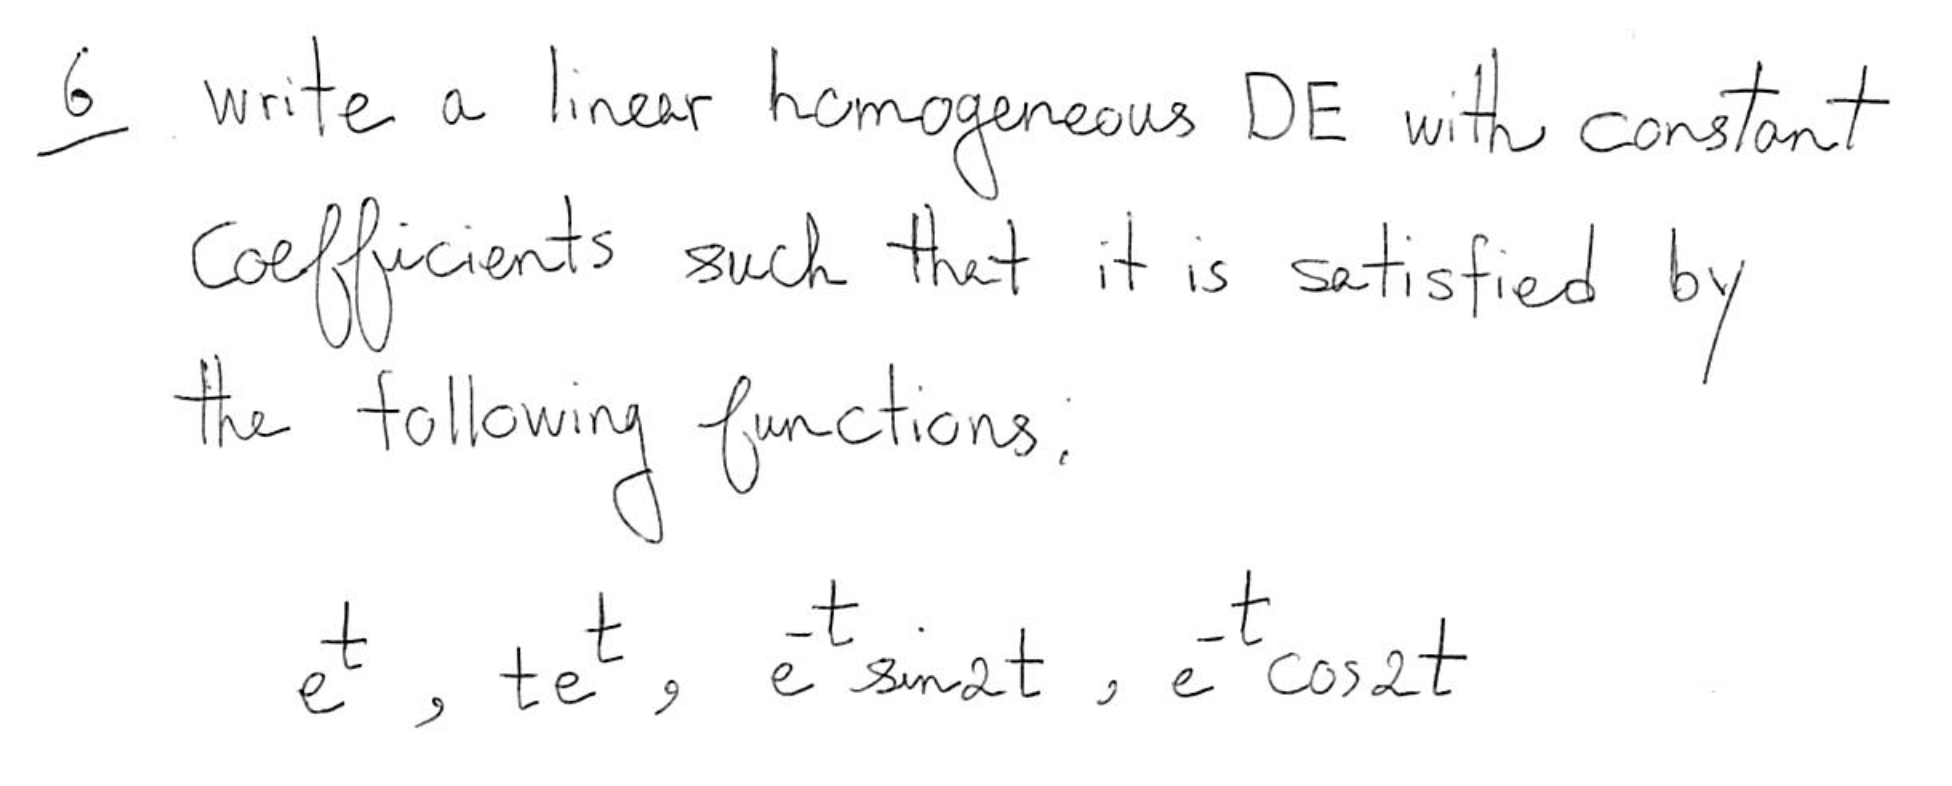 6 write a linear homogeneous DE with constant
coefficients such that it is satisfied by
the following functions:
e^t, te^t, e^-t sin2t, e^-t cos2t